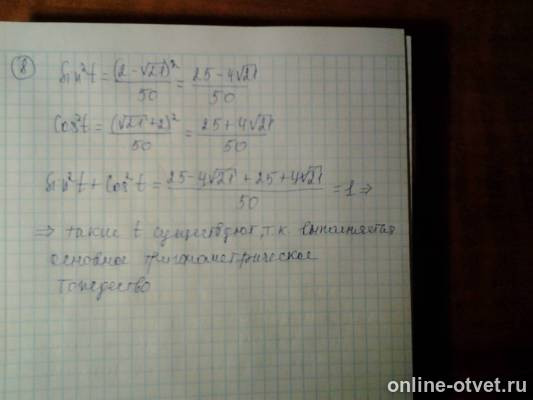 ⑧ Sin²t = (2-√21)²/50 = 25-4√21/50
Cos²t = (√21+2)²/50 = 25+4√21/50
Sin²t + Cos²t = 25-4√21+25+4√21/50 = 1 ⇒
⇒ такие t существуют, т.к. выполняется
основное тригонометрическое
тождество
online-otvet.ru